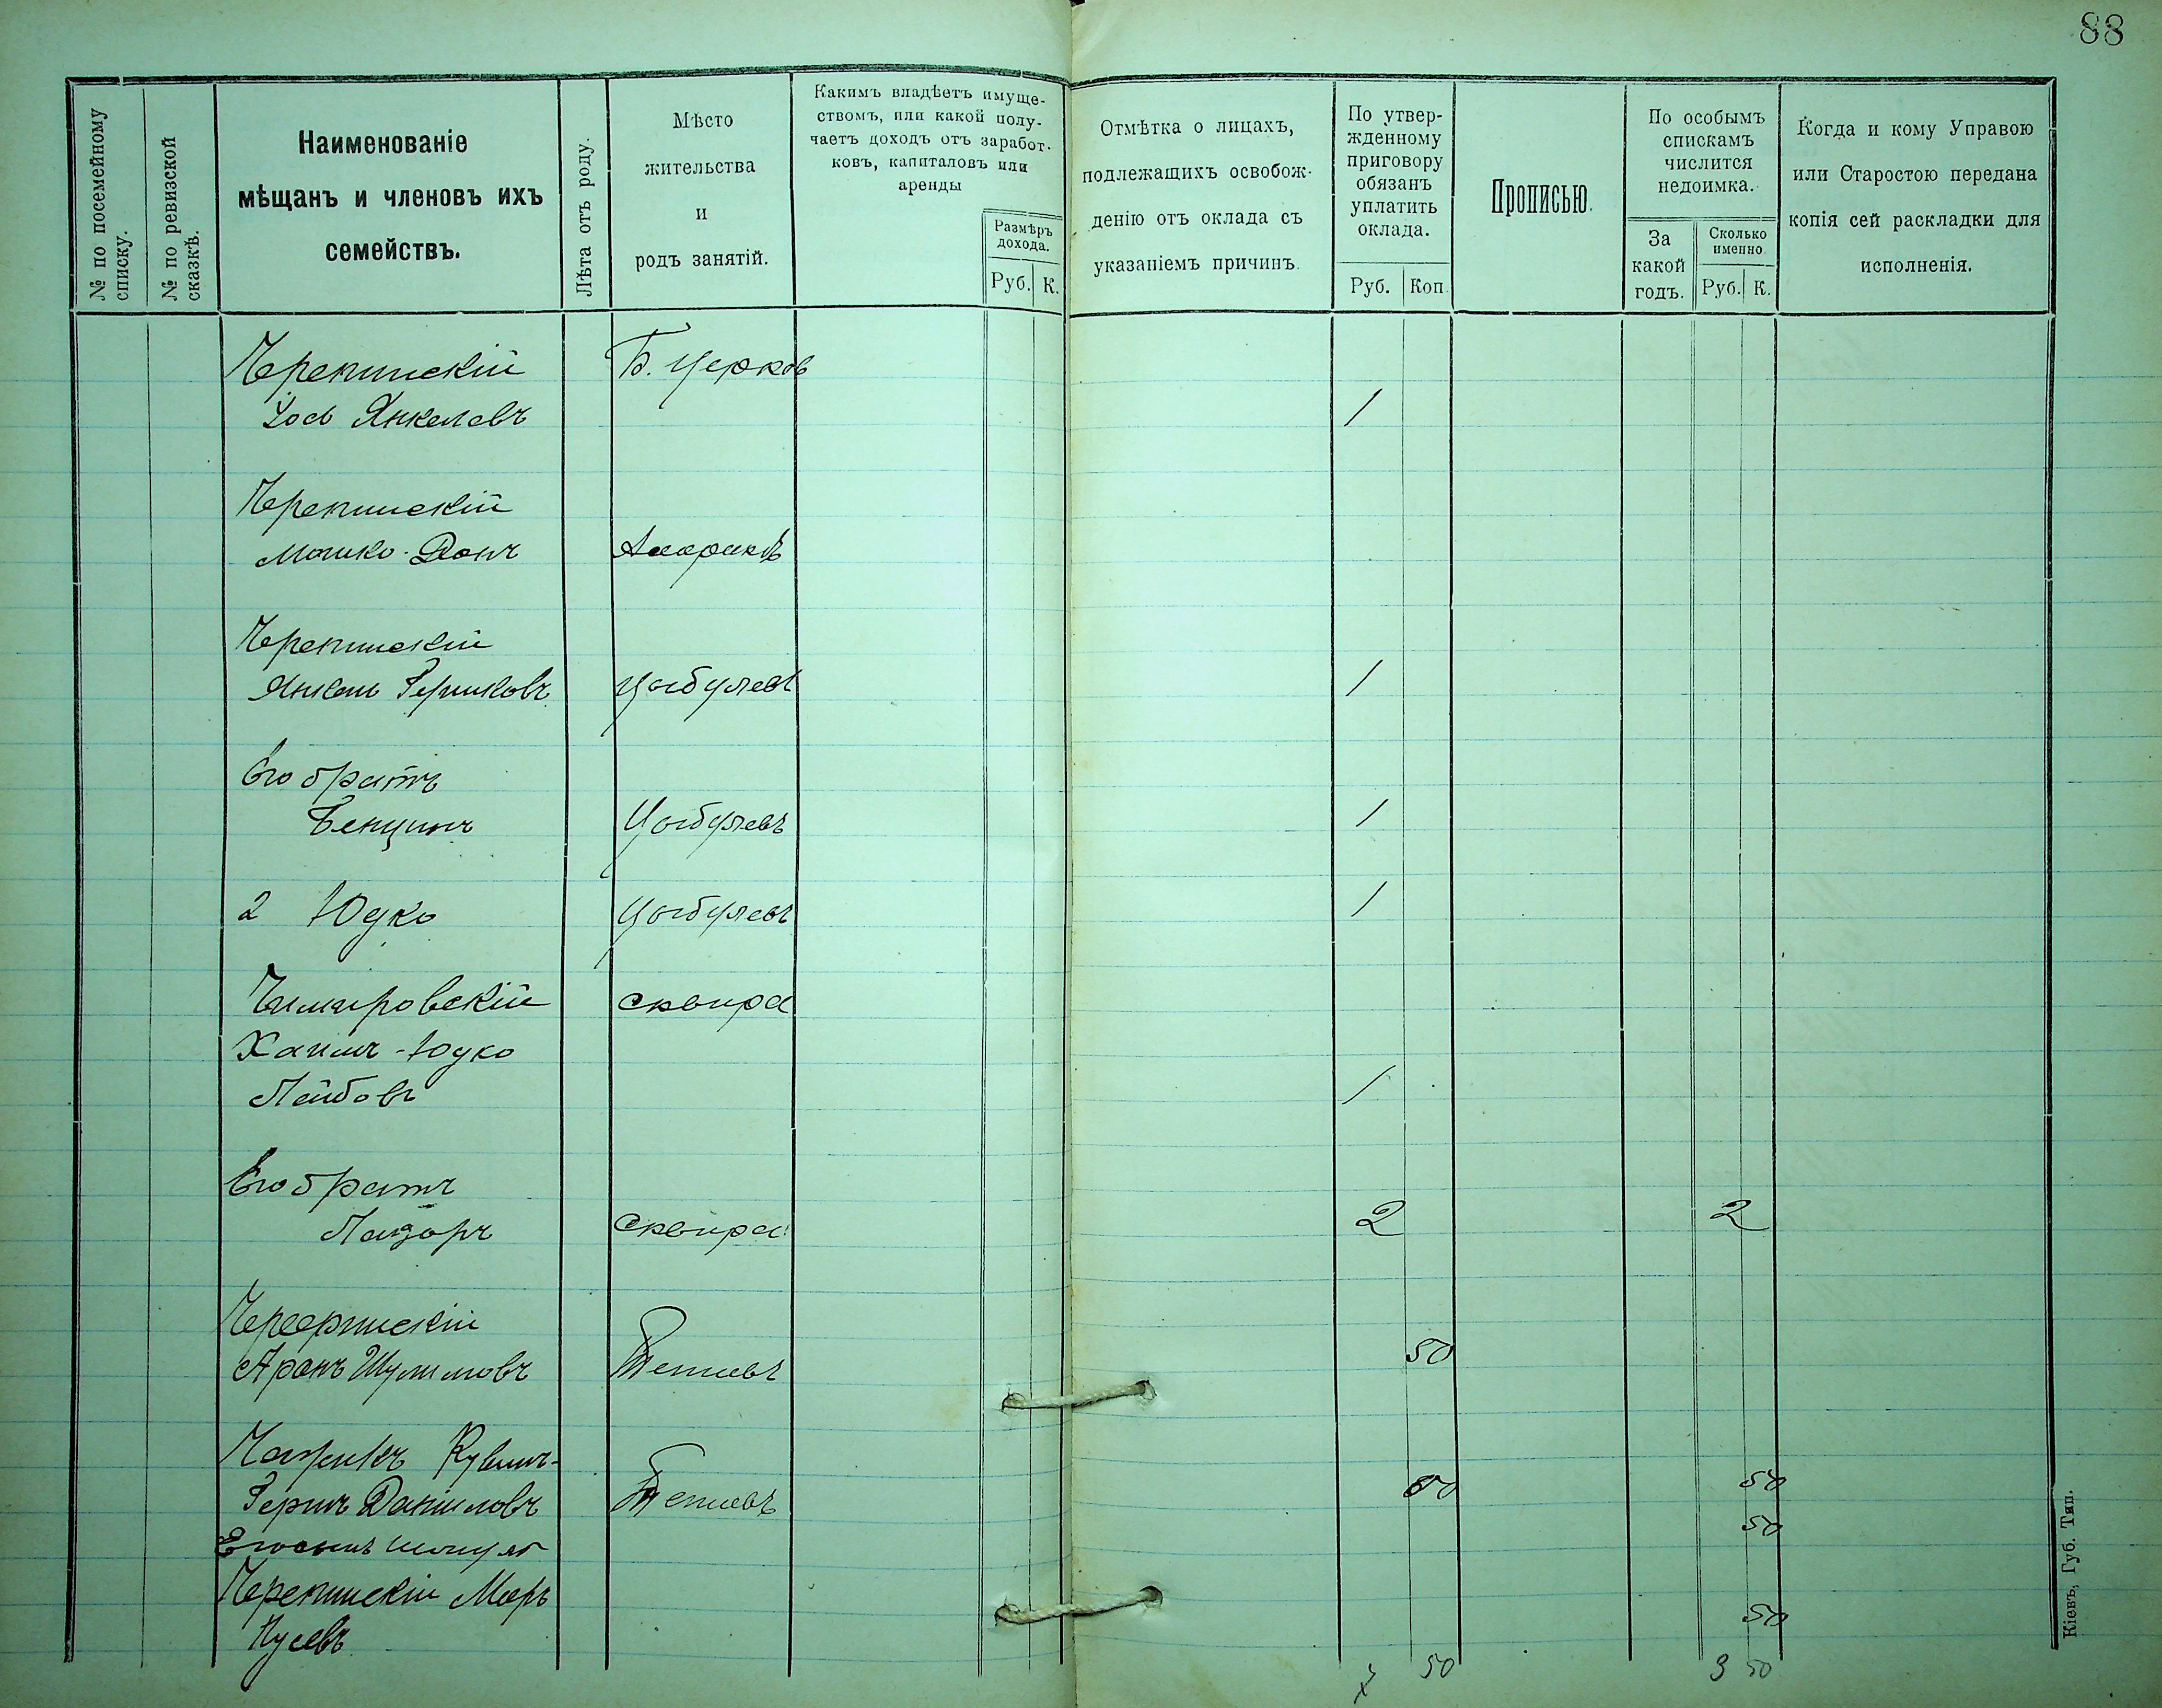 88
№ по посемейному
списку.
№ по ревизской
сказкѣ.
Наименованіе
мѣщанъ и членовъ ихъ
семействъ.
Лѣта отъ роду.
Мѣсто
жительства
и
родъ занятій.
Какимъ владѣетъ имуще-
ствомъ, или какой полу-
чаетъ доходъ отъ заработ-
ковъ, капиталовъ или
аренды
Размѣръ
дохода.
Руб. К.
Отмѣтка о лицахъ,
подлежащихъ освобож-
денію отъ оклада съ
указаніемъ причинъ.
По утвер-
жденному
приговору
обязанъ
уплатить
оклада.
Руб. Коп.
Прописью.
По особымъ
спискамъ
числится
недоимка.
За
какой
годъ.
Сколько
именно.
Руб. К.
Когда и кому Управою
или Старостою передана
копія сей раскладки для
исполненія.
Черепинскій Б. Церковь
Іось Янкелевъ 1
Черепинскій
Мошко-
Черепинскій
Янкель Гершковъ Цыбулевъ 1
Его братъ
Бенціонъ Цыбулевъ 1
2 Юдко Цыбулевъ 1
сквира
Хаимъ-Юдко
Лейбовъ 1
Его братъ
Лазоръ Сквира 2 2
Аронъ Шулимовъ Тетіевъ 50
Гершъ Даниловъ Тетіевъ 50 50
50
Черепинскій Мееръ
50
50 3 50
Кіевъ, Губ. Тип.